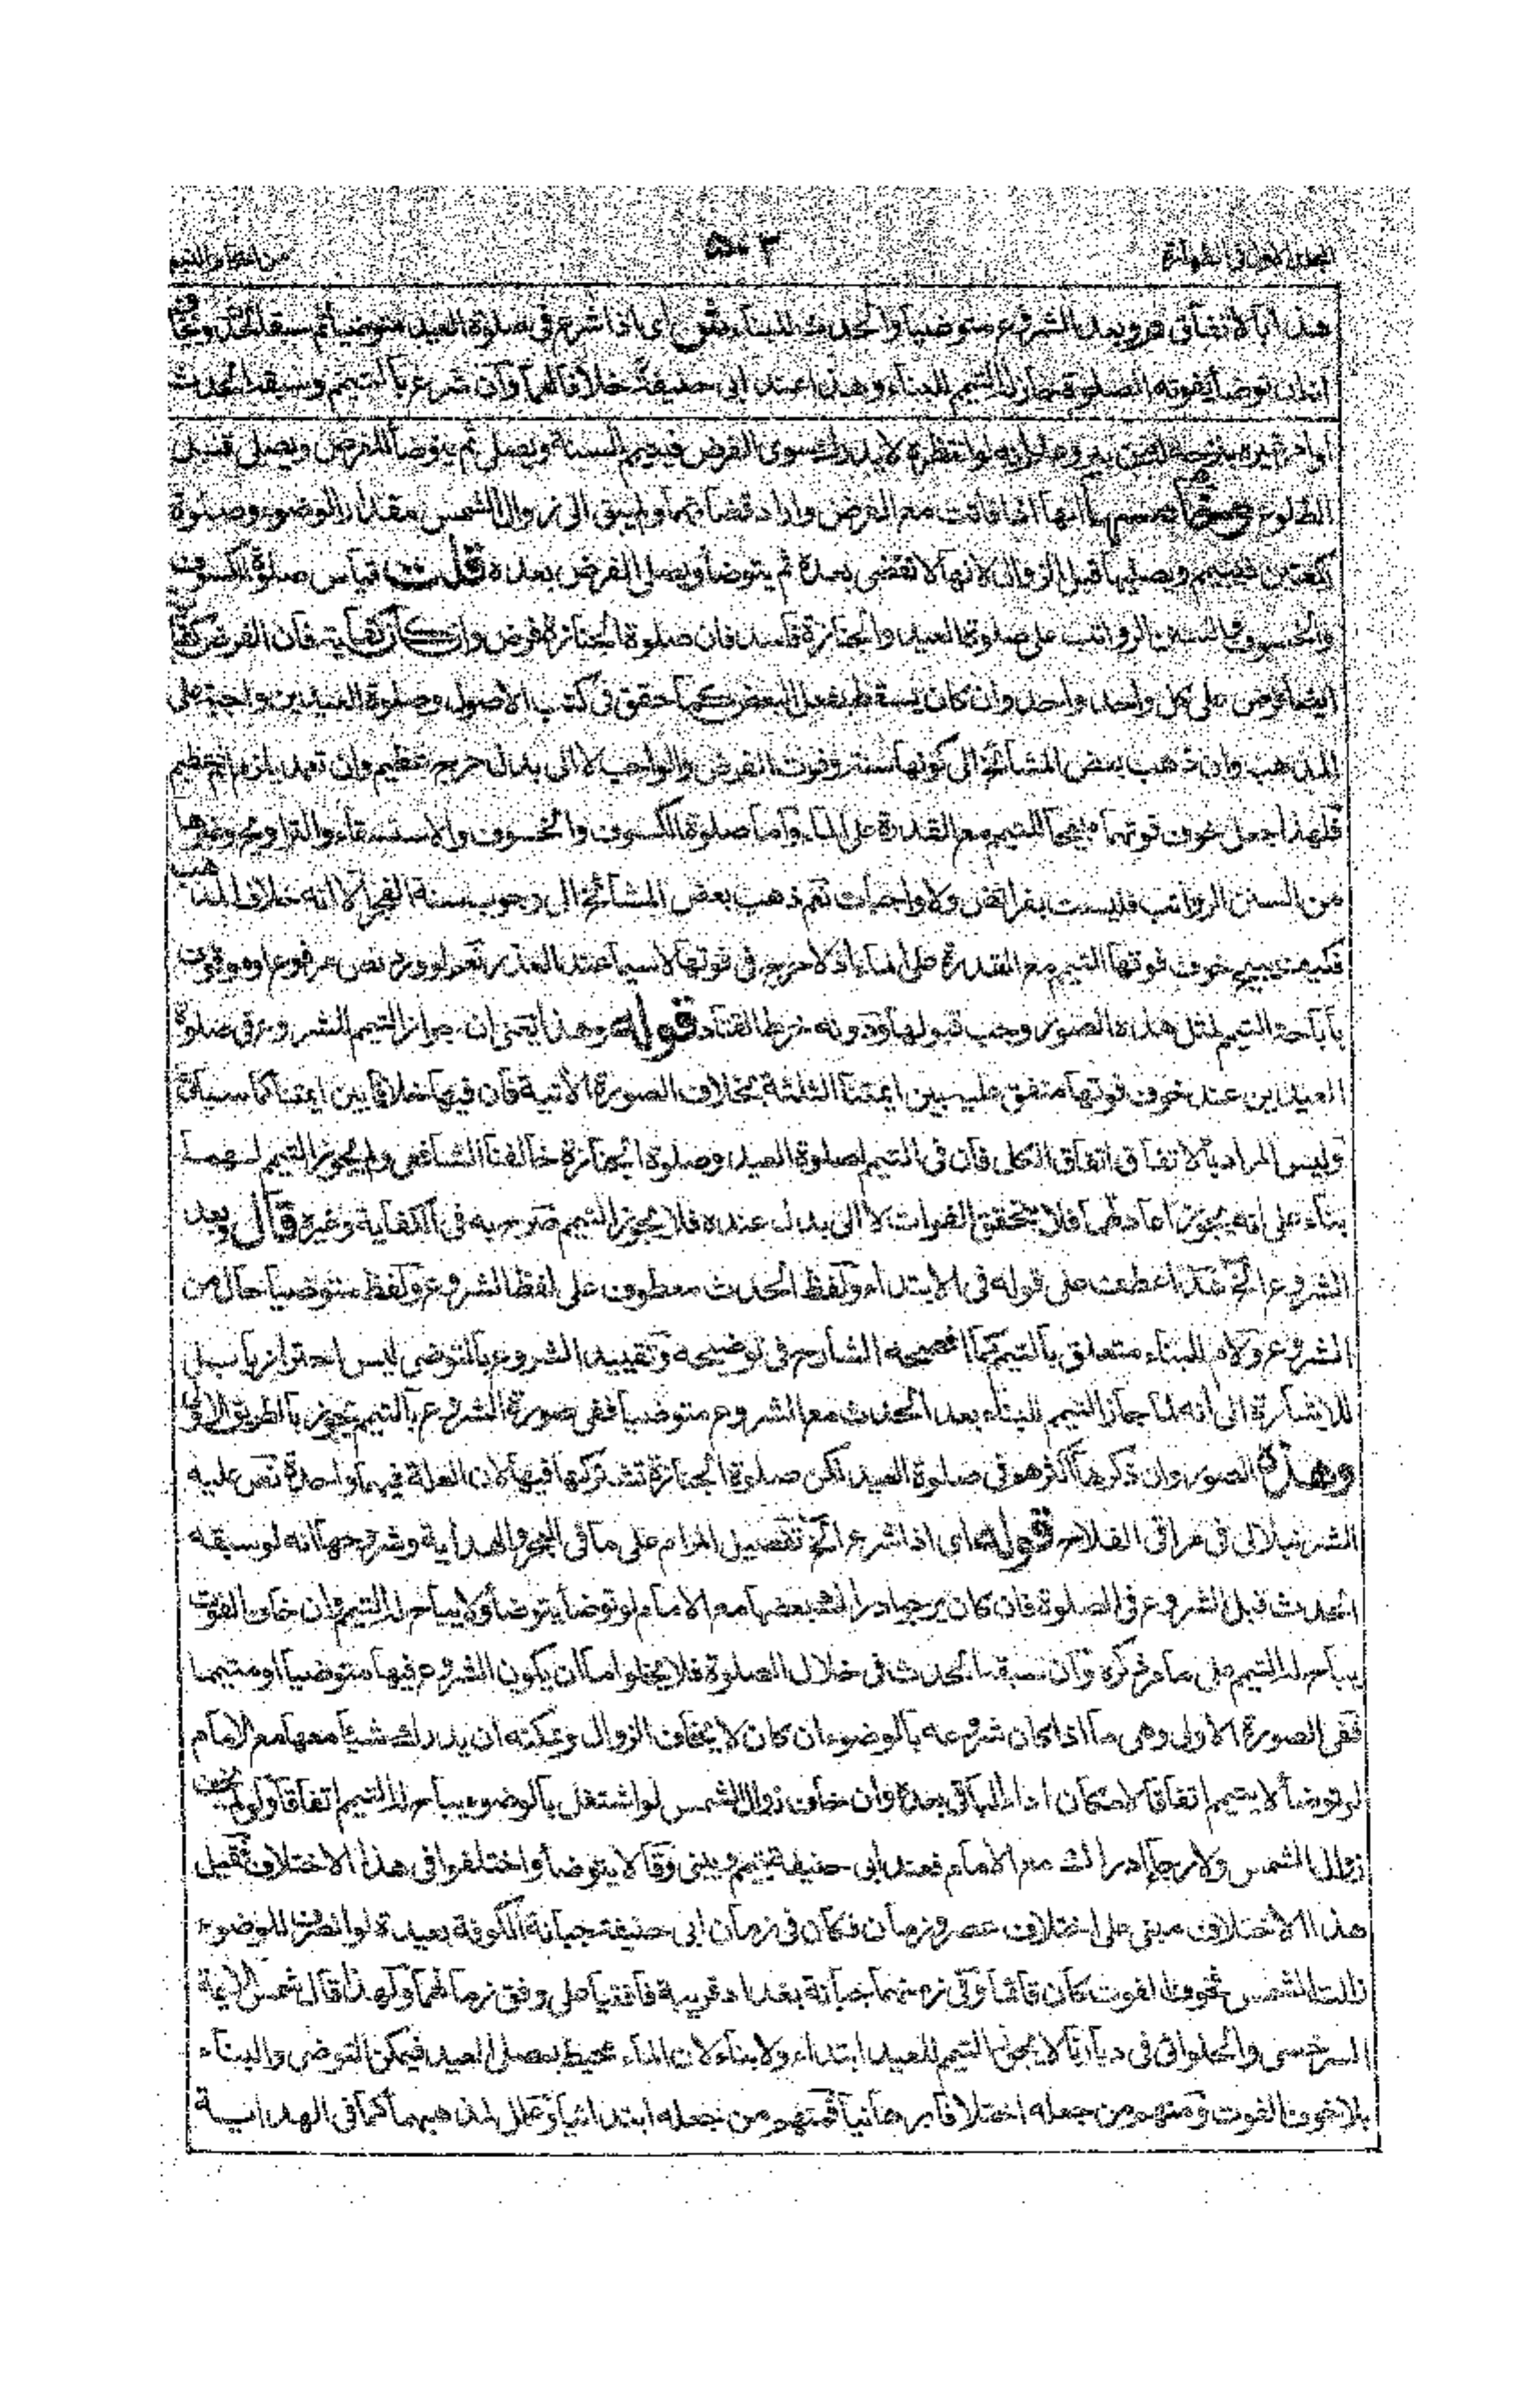 ٥٠٣
هذا بالاتفاق هو وبعد الشروع متوضيا والحدث للبناء ش اى اذا شرع فى صلوة العيد متوضيا ثم سبقه الحدث
انه ان توضأ يفوته الصلوة جاز له التيمم للبناء وهذا عند ابى حنيفة خلافا لهما وان شرع بالتيمم وسبقه الحدث
لا يدرك سوى الفرض فيتيم للسنة ويصلى ثم يتوضأ للفرض ويصلى قبل
الطلوع ومنها انها اذا فاتت مع الفرض واراد قضائهما ولم يبق الى زوال الشمس مقدار الوضوء وصلوة
ركعتين فيتيمم ويصليها قبل الزوال لانها لا تقضى بعدة ثم يتوضأ ويصلى الفرض بعده قلت قياس صلوة الكسوف
والخسوف والسنن الرواتب على صلوة العيد والجنازة فاسد فان صلوة الجنازة فرض وان كان كفاية فان الفرض كفاية
ايضا فرض على كل واحد واحد وان كان يسقط بفعل البعض كما حقق فى كتب الاصول وصلوة العيدين واجبة على
المذهب وان ذهب بعض المشائخ الى كونها سنة وفوت الفرض والواجب لا الى بدل حرج عظيم
فلهذا جعل خوف فوتهما مبيحا للتيمم مع القدرة على الماء واما صلوة الكسوف والخسوف والاستسقاء والتراويح وغيرها
من السنن الرواتب فليست بفرائض ولا واجبات نعم ذهب بعض المشائخ الى وجوب سنة الفجر الا انه خلاف المذهب
فكيف يبيح خوف فوتها التيمم مع القدرة على الماء اذ لا حرج فى فوتها لا سيما عند العذر نعم لو ورد نص مرفوع او موقوف
باباحة التيمم لمثل هذه الصور وجب قبولها ودونه خرط القتاد قوله وهذا يعنى ان جواز التيمم للشروع فى صلوة
العيدين عند خوف فوتها متفق عليه بين ايمتنا الثلثة بخلاف الصورة الآتية فان فيها خلافا بين ايمتنا كما سياتى
وليس المراد بالاتفاق اتفاق الكل فان فى التيمم لصلوة العيد وصلوة الجنازة خالفنا الشافعى ولم يجوز التيمم لهما
بناء على انه يجوز اعادتهما فلا يتحقق الفوات لا الى بدل عنده فلا يجوز التيمم صرح به فى الكفاية وغيره قال وبعد
الشروع الخ هذا عطف على قوله فى الابتداء ولفظ الحدث معطوف على لفظ الشروع ولفظ متوضيا حال من
الشروع ولام للبناء متعلق بالتيمم كما افصحه الشارح فى توضيحه وتقييد الشروع بالتوضى ليس احترازيا بل
للاشارة الى انه لما جاز التيمم للبناء بعد الحدث مع الشروع متوضيا ففى صورة الشروع بالتيمم يجوز بالطريق الاولى
وهذه الصور وان ذكرها اكثرهم فى صلوة العيد لكن صلوة الجنازة تشتركها فيها لان العلة فيهما واحدة نص عليه
الشرنبلالى فى مراقى الفلاح قوله اى اذا شرع الخ تفصيل المرام على ما فى البحر والهداية وشروحها انه لو سبقه
الحدث قبل الشروع فى الصلوة فان كان يرجو ادراك بعضها مع الامام لو توضأ يتوضأ ولا يباح له التيمم وان خاف الفوت
يباح له التيمم على ما مر ذكره وان سبقه الحدث فى خلال الصلوة فلا يخلو اما ان يكون الشروع فيها متوضيا او متيمما
ففى الصورة الاولى وهى ما اذا كان شروعه بالوضوء ان كان لا يخاف الزوال ويمكنه ان يدرك شيئا منها مع الامام
لو توضأ لا يتيمم اتفاقا لامكان اداء الباقى بعدة وان خاف زوال الشمس لو اشتغل بالوضوء يباح له التيمم اتفاقا ولو لم يخف
زوال الشمس ولا رجا ادراك مع الامام فعند ابى حنيفة يتيمم ويبنى وقالا يتوضأ واختلفوا فى هذا الاختلاف فقيل
هذا الاختلاف مبنى على اختلاف عصر وزمان فكان فى زمان ابى حنيفة جبانة الكوفة بعيدة لو انصرف للوضوء
زالت الشمس فخوف الفوت كان قائما وفى زمنهما جبانة بغداد قريبة فافتيا على وفق زمانهما ولهذا قال شمس الايمة
السرخسى والحلوانى فى ديارنا لا يجوز التيمم للعيد ابتداء ولا بناء لان الماء محيط بمصلى العيد فيمكن التوضى والبناء
بلا خوف الفوت ومنهم من جعله اختلافا برهانيا فمنهم من جعله ابتدائيا وعلل لمذهبيهما كما فى الهداية